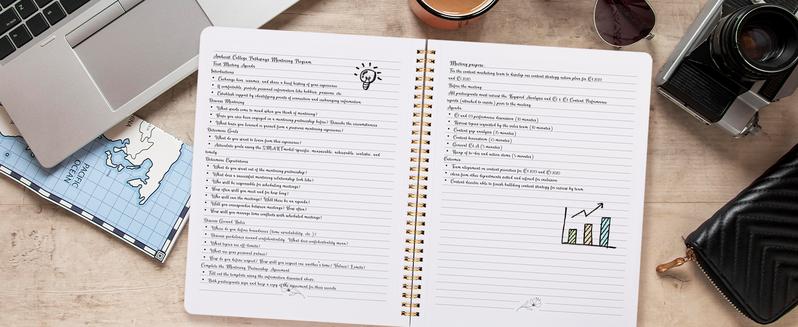 Amherst College Pathways Mentoring Program
First Meeting Agenda
Introductions
• Exchange bios, resumes, and share a brief history of your experience
• If comfortable, provide personal information like hobbies, passions, etc.
• Establish rapport by identifying points of connection and exchanging information
Discuss Mentoring
• What goals come to mind when you think of mentoring?
• Have you ever engaged in a mentoring partnership before? Describe the circumstances
• What have you learned or gained from a previous mentoring experience?
Determine Goals
• What do you want to learn from this experience?
• Articulate goals using the S.M.A.R.T. model: specific, measurable, achievable, realistic, and
timely.
Determine Expectations
• What do you want out of the mentoring partnership?
• What does a successful mentoring relationship look like?
• Who will be responsible for scheduling meetings?
• How often will you meet and for how long?
• Who will run the meetings? Will there be an agenda?
• Will you correspond between meetings? How often?
• How will you manage time conflicts with scheduled meetings?
Discuss Ground Rules
• Where do you define boundaries (time, availability, etc.)?
• Discuss guidelines around confidentiality. What does confidentiality mean?
• What topics are off-limits?
• What are your personal values?
• How do you define respect? How will you respect one another's time? Values? Limits?
Complete the Mentoring Partnership Agreement
• Fill out the template using the information discussed above.
• Both participants sign and keep a copy of the agreement for their records.
Meeting purpose:
For the content marketing team to develop our content strategy action plan for Q1 2020
and Q2 2020
Before the meeting
All participants must review the Keyword Analysis and Q3 & Q4 Content Performance
reports (attached to invite) prior to the meeting
Agenda
• Q3 and Q4 performance discussion (15 minutes)
• Repeat topics requested by the sales team (10 minutes)
• Content gap analysis (15 minutes)
• Content
• Metrics (5 minutes)
• Recap of to-dos and action items (5 minutes)
Outcomes
• Team alignment on content priorities for Q1 2020 and Q2 2020
• ideas from other departments vetted and refined for inclusion
• Content director able to finish building content strategy for review by team
PACIFIC
OCEAN